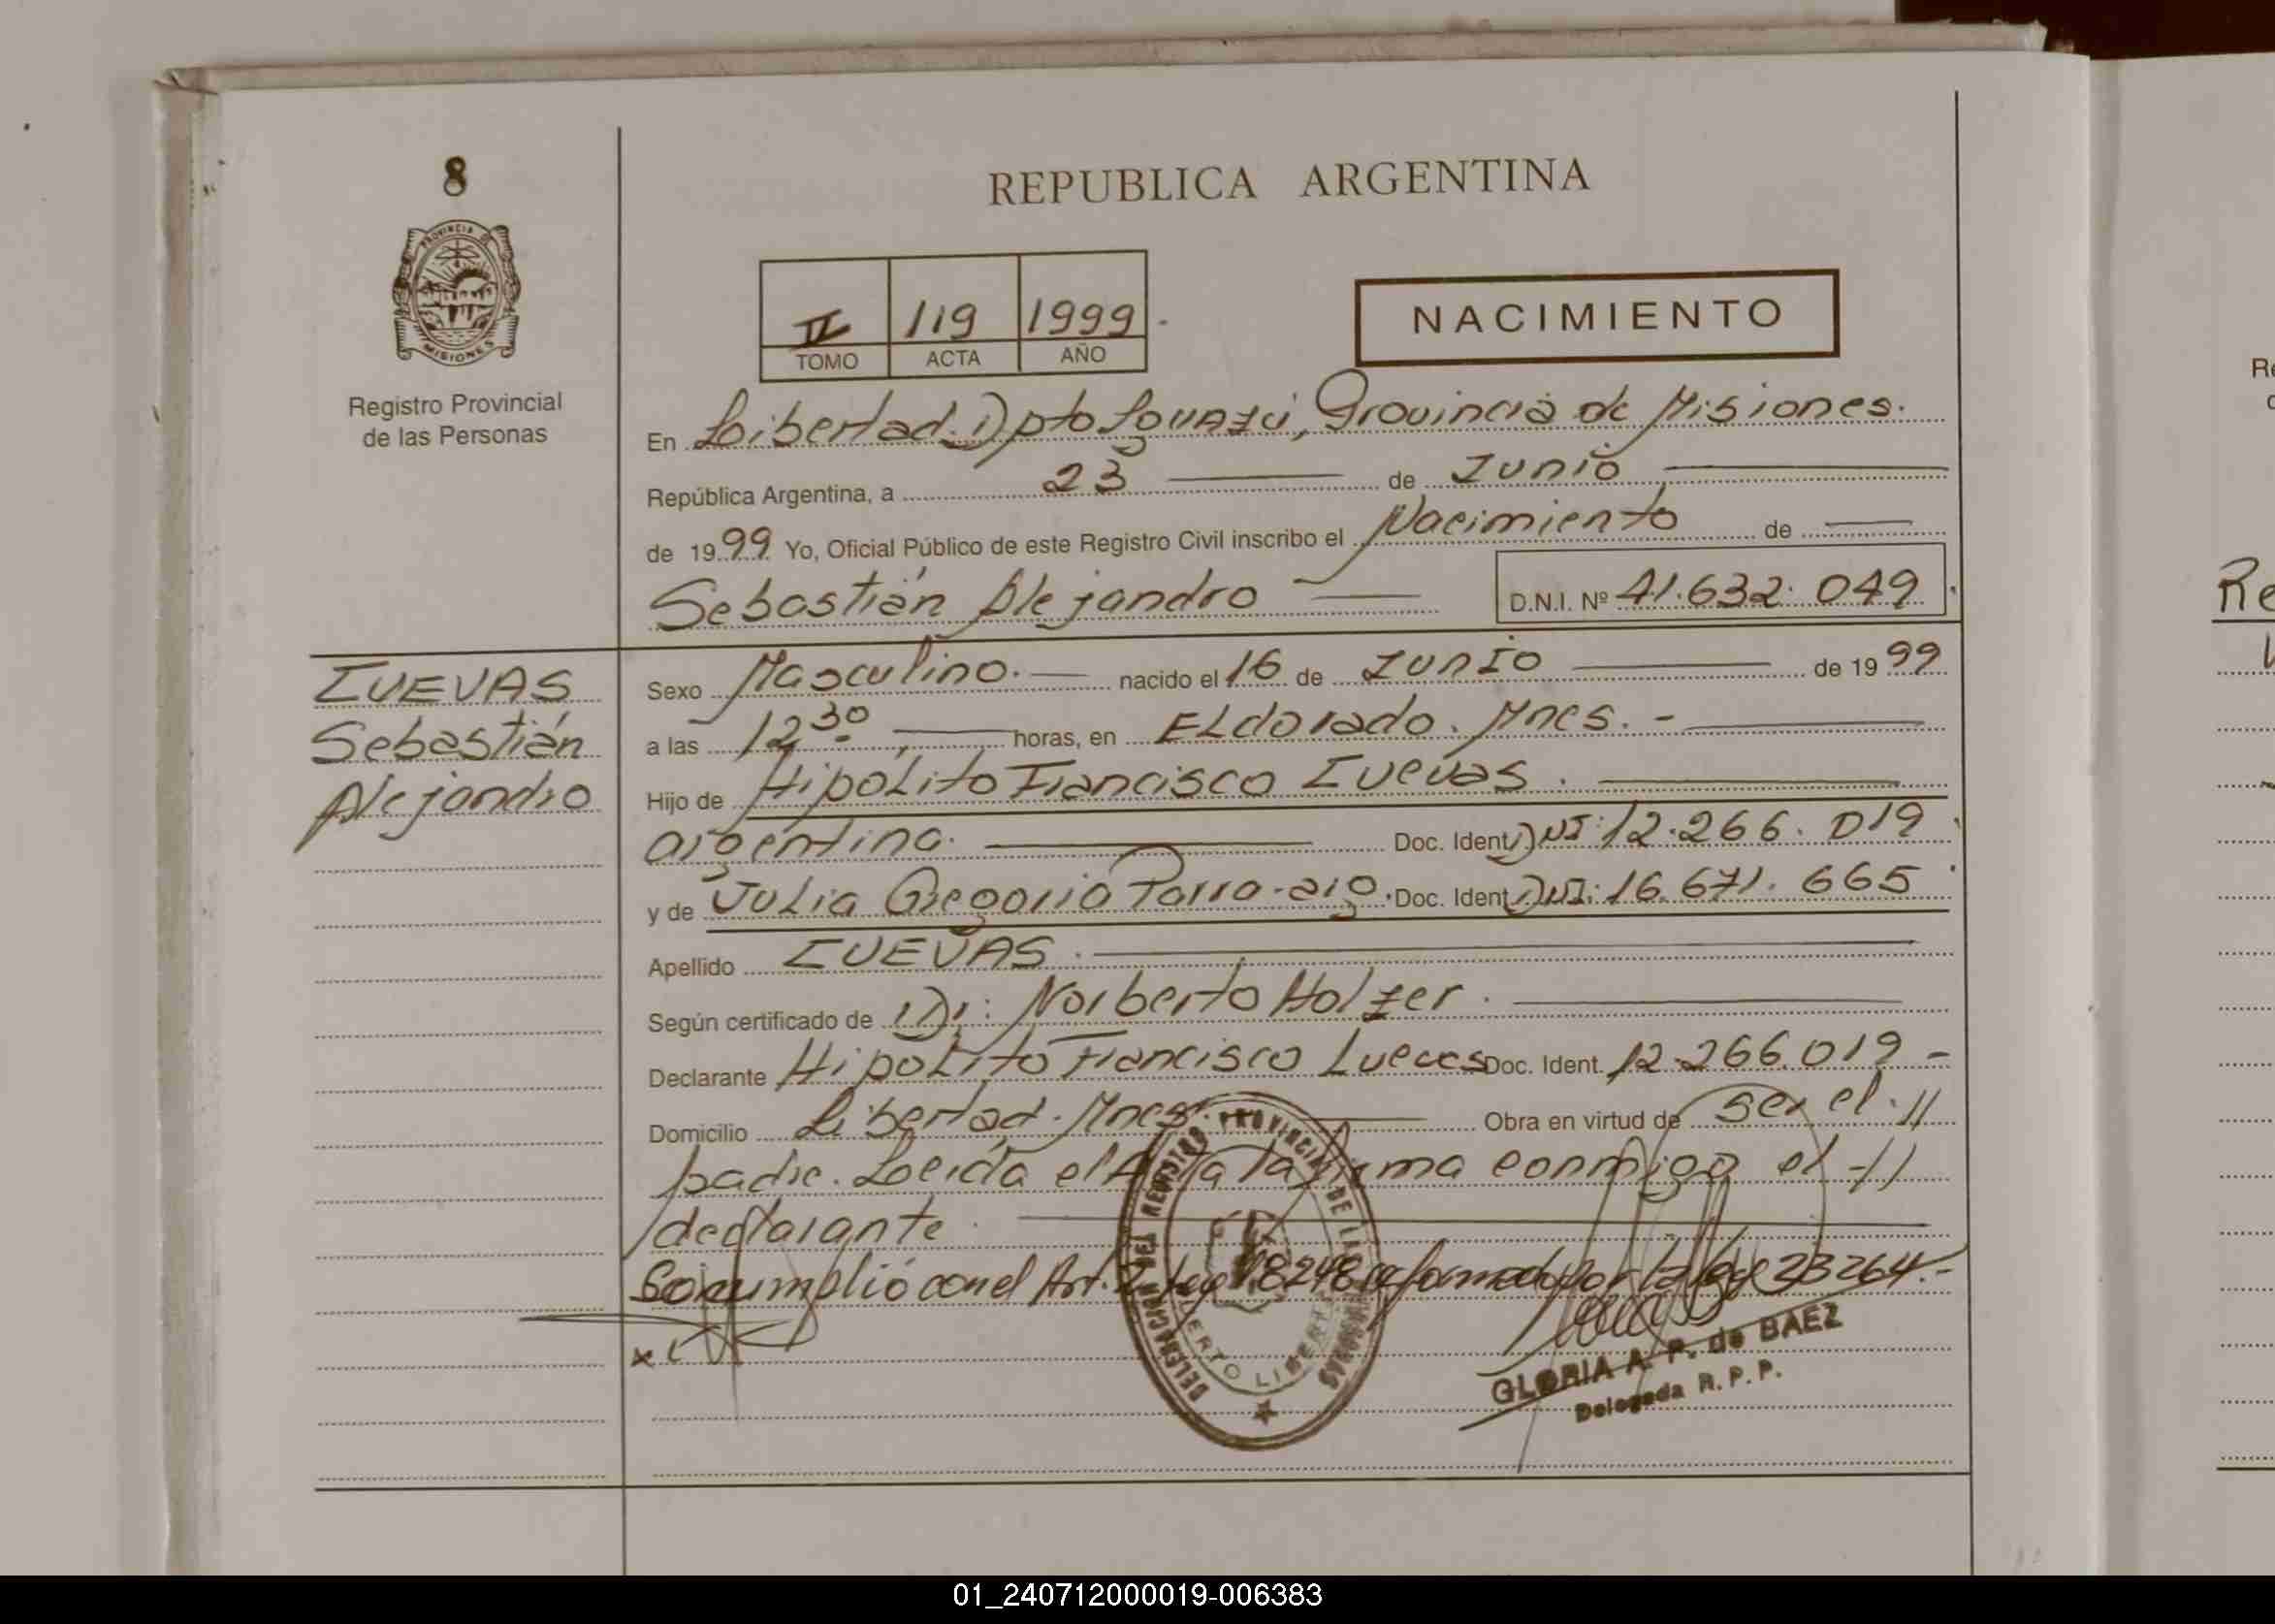 8
PROVINCIA DE
MISIONES
Registro Provincial
de las Personas
REPUBLICA ARGENTINA
II 119 1999.
TOMO ACTA AÑO
NACIMIENTO
En Libertad. Dpto Iguazú, Provincia de Misiones.
República Argentina, a 23 de Junio
de 1999 Yo, Oficial Público de este Registro Civil inscribo el Nacimiento de
Sebastián Alejandro D.N.I. Nº 41.632.049.
CUEVAS
Sebastián
Alejandro
Sexo Masculino. nacido el 16 de Junio de 1999
a las 12 30 horas, en Eldorado. Mnes. -
Hijo de Hipólito Francisco Cuevas.
argentina. Doc. Ident. DNI: 12.266.019.
y de Julia Gregoria Parra - arg. Doc. Ident. DNI: 16.671.665.
Apellido CUEVAS.
Según certificado de Dr: Norberto Holzer.
Declarante Hipólito Francisco Cuevas Doc. Ident. 12.266.019 -
Domicilio Libertad. Mnes. Obra en virtud de ser el. //
padre. Leída el Acta la firma conmigo el -//
declarante.
Se cumplió con el Art. 2 Ley 18248 reformado por la Ley 23264.-
x
DELEGACION DEL REGISTRO PROVINCIAL DE LAS PERSONAS
PUERTO LIBERTAD
GLORIA A. P. de BAEZ
Delegada R. P. P.
Re
01_240712000019-006383